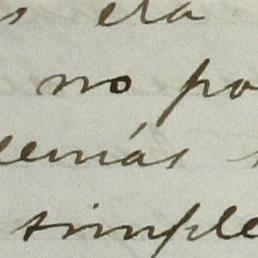 s era
no po
demás
simple